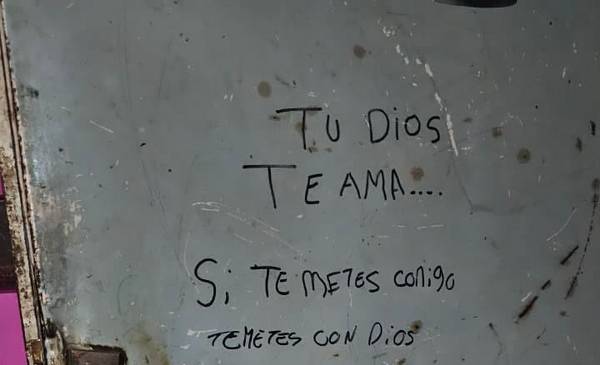 TU DIOS
TE AMA....
Si TE METES conigo
TEMETES CON DioS